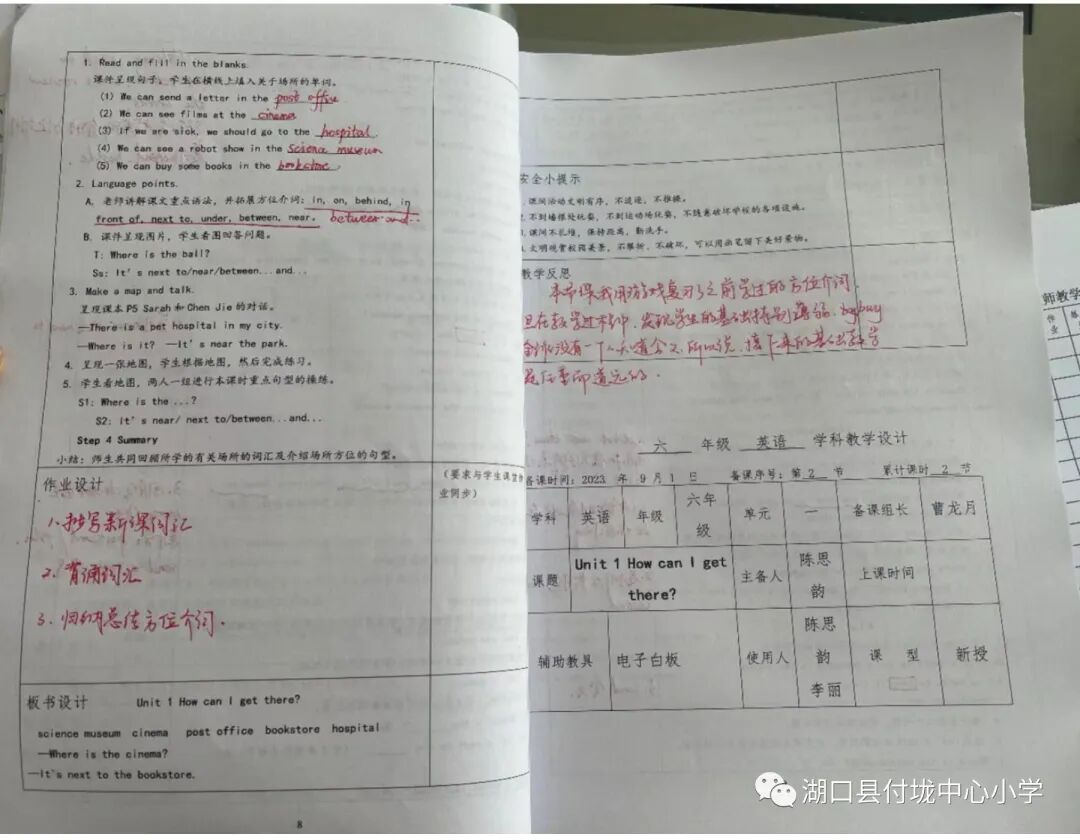 1. Read and fill in the blanks.
课件呈现句子，学生在横线上填入关于场所的单词。
(1) We can send a letter in the post office
(2) We can see films at the cinema
(3) If we are sick, we should go to the hospital.
(4) We can see a robot show in the science museum
(5) We can buy some books in the bookstore.
2. Language points.
A. 老师讲解课文重点语法，并拓展方位介词：in, on, behind, in
front of, next to, under, between, near. between and..
B. 课件呈现图片，学生看图回答问题。
T: Where is the ball?
Ss: It's next to/near/between...and...
3. Make a map and talk.
呈现课本 P5 Sarah 和 Chen Jie 的对话。
—There is a pet hospital in my city.
—Where is it? —It's near the park.
4. 呈现一张地图，学生根据地图，然后完成练习。
5. 学生看地图，两人一组进行本课时重点句型的操练。
S1: Where is the ...?
S2: It's near/ next to/between...and...
Step 4 Summary
小结：师生共同回顾所学的有关场所的词汇及介绍场所方位的句型。
作业设计
（要求与学生课堂作
业同步）
1. 抄写新课词汇
2. 背诵词汇
3. 归纳总结方位介词.
板书设计 Unit 1 How can I get there?
science museum cinema post office bookstore hospital
—Where is the cinema?
—It's next to the bookstore.
8
安全小提示
1.课间活动文明有序，不追逐，不推搡。
2.不到墙根处玩耍，不到运动场玩耍，不随意破坏学校的各项设施。
3.课间不扎堆，保持距离，勤洗手。
4.文明观赏校园美景，不攀折，不破坏，可以用画笔留下美好景物。
教学反思
本节课我用游戏复习了之前学过的方位介词
但在教学过程中，发现学生的基础特别薄弱，
没有一个人知道含义，所以说，接下来的基础教学
是任重而道远的.
六 年级 英语 学科教学设计
备课时间：2023 年 9 月 1 日 备课序号：第 2 节 累计课时 2 节
学科 英语 年级 六年级 单元 一 备课组长 曹龙月
课题 Unit 1 How can I get there? 主备人 陈思韵 上课时间
辅助教具 电子白板 使用人 陈思韵 李丽 课 型 新授
师教学
作
业
湖口县付垅中心小学